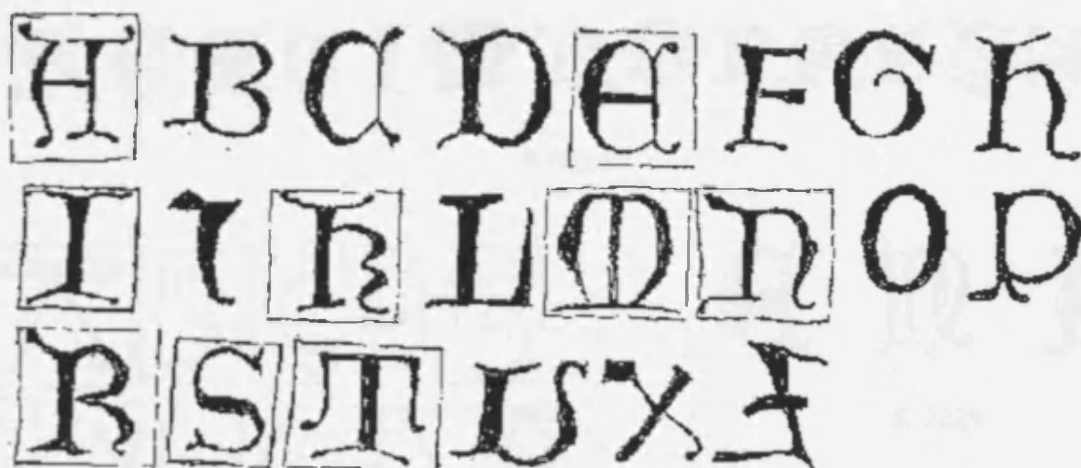 A B C D E F G H
I J K L M N O P
R S T U X Z